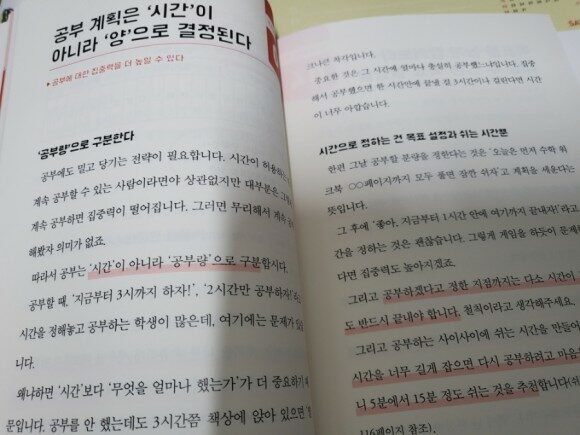 공부 계획은 '시간'이
아니라 '양'으로 결정된다
▸공부에 대한 집중력을 더 높일 수 있다
'공부량'으로 구분한다
공부에도 밀고 당기는 전략이 필요합니다. 시간이 허용하는
계속 공부할 수 있는 사람이라면야 상관없지만 대부분은 그렇
계속 공부하면 집중력이 떨어집니다. 그러면 무리해서 계속 공
해봤자 의미가 없죠.
따라서 공부는 '시간'이 아니라 '공부량'으로 구분합시다.
공부할 때, '지금부터 3시까지 하자!', '2시간만 공부하자!'
시간을 정해놓고 공부하는 학생이 많은데, 여기에는 문제가 있
니다.
왜냐하면 '시간'보다 '무엇을 얼마나 했는가'가 더 중요하기
문입니다. 공부를 안 했는데도 3시간쯤 책상에 앉아 있으면
크나큰 착각입니다.
중요한 것은 그 시간에 얼마나 충실히 공부했느냐입니다. 집중
해서 공부했으면 한 시간만에 끝낼 걸 3시간이나 걸린다면 시간
이 너무 아깝습니다.
시간으로 정하는 건 목표 설정과 쉬는 시간뿐
한편 그날 공부할 분량을 정한다는 것은 '오늘은 먼저 수학 워
크북 ○○페이지까지 모두 풀면 잠깐 쉬자'고 계획을 세운다는
뜻입니다.
그 후에 '좋아, 지금부터 1시간 안에 여기까지 끝내자!'라고
간을 정하는 것은 괜찮습니다. 그렇게 게임을 하듯이 문제
다면 집중력도 높아지겠죠.
그리고 공부하겠다고 정한 지점까지는 다소 시간이
도 반드시 끝내야 합니다. 철칙이라고 생각해주세요.
그리고 공부하는 사이사이에 쉬는 시간을 만들어
시간을 너무 길게 잡으면 다시 공부하려고 마음
니 5분에서 15분 정도 쉬는 것을 추천합니다(쉬
116페이지 참조).